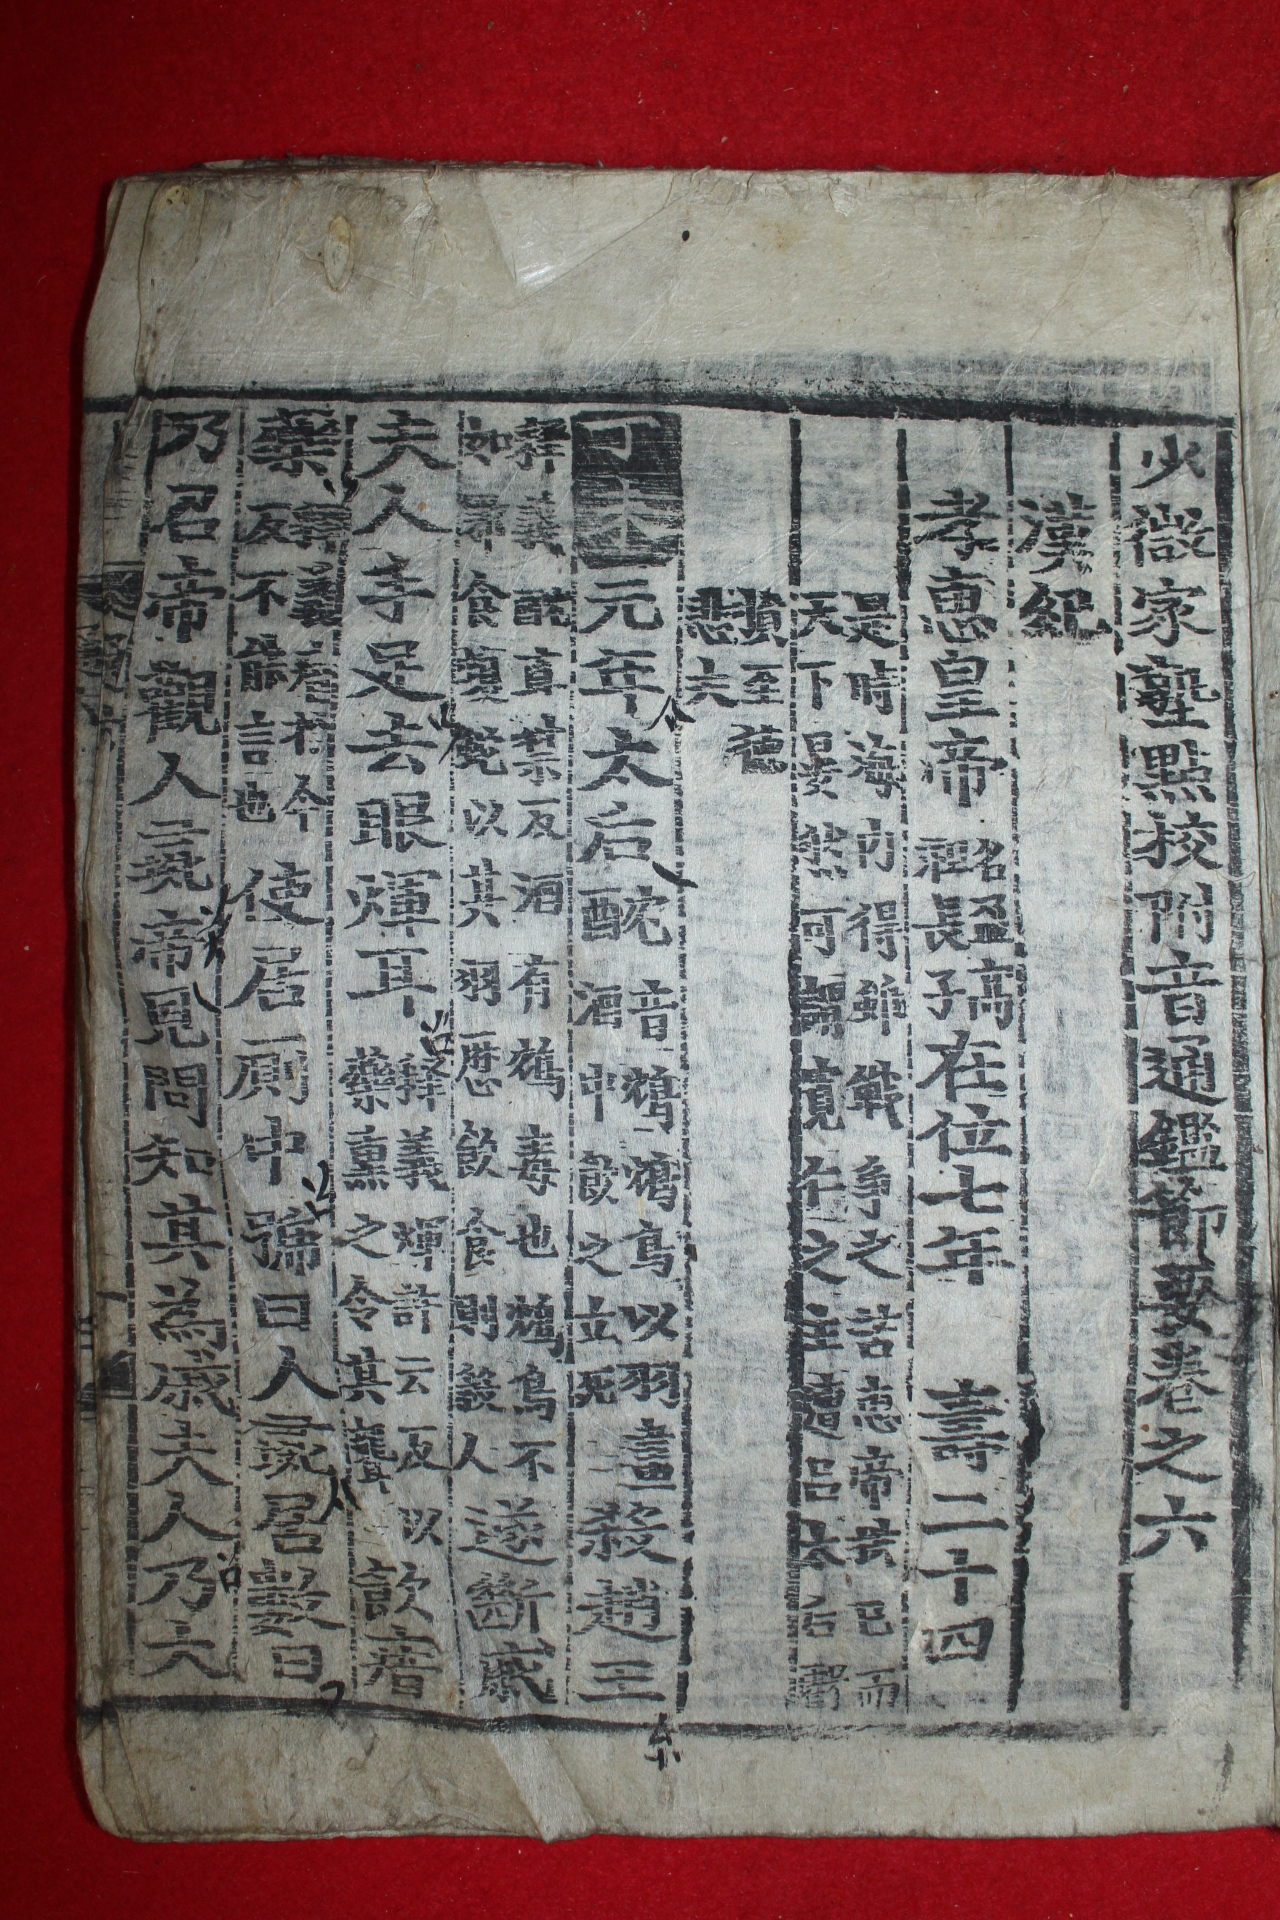 少微家塾點校附音通鑑節要卷之六
漢紀
孝惠皇帝
名盈高
祖長子
在位七年 壽二十四
是時海內得離戰爭之苦惠帝恭己而
天下晏然可謂寬仁之主遭呂太后虧
損至德
悲夫
丁未元年太后酖
音鴆鴆鳥以羽畫
酒中飮之立死
殺趙王
釋義酖直禁反酒有鴆毒也鴆鳥不
如鴞食蝮蛇以其羽歷飮食則殺人
遂斷戚
夫人手足去眼煇耳
釋義煇許云反以
藥熏之令其聾
飮瘖
藥
釋義瘖於今
反不能言也
使居厠中號曰人彘居數日
乃召帝觀人彘帝見問知其爲戚夫人乃大